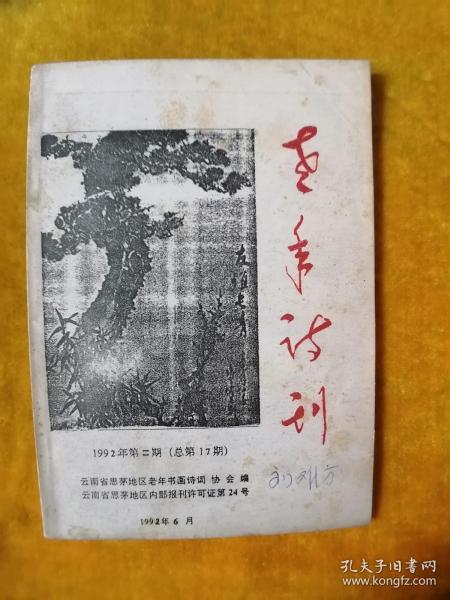 老年诗刊
友谊长青
1992年第二期（总第17期）
云南省思茅地区老年书画诗词 协会 编
云南省思茅地区内部报刊许可证第24号
1992年6月
孔夫子旧书网
www.kongfz.com